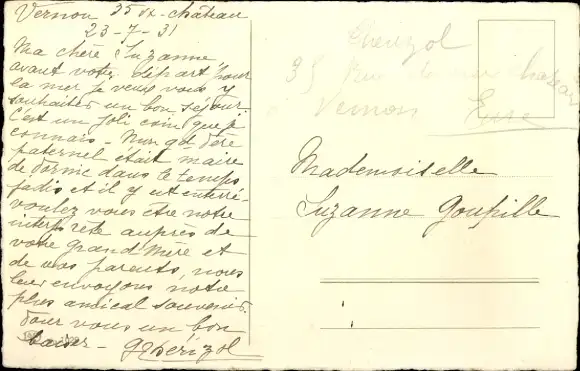 Vernon 35 r. x-château
23-7-31
Ma chère Suzanne,
avant votre départ pour
la mer je veux vous y
souhaiter un bon séjour.
C'est un joli coin que je
connais - Mon gd père
paternel était maire
de dans le temps
jadis et il y est enterré.
voulez vous être notre
interprète auprès de
votre grand Mère et
de vos parents, nous
leur envoyons notre
plus amical souvenir.
Pour vous un bon
baiser -
35 Rue
Vernon
Eure
Mademoiselle
Suzanne Goupille